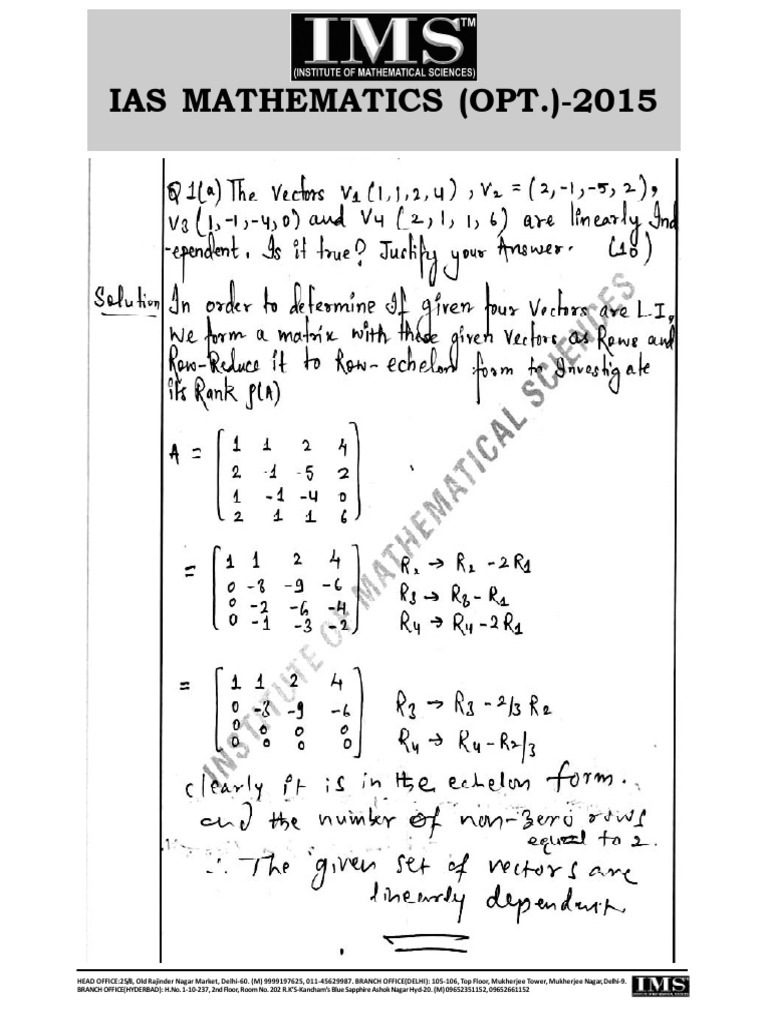 IMS™
(INSTITUTE OF MATHEMATICAL SCIENCES)
IAS MATHEMATICS (OPT.)-2015
Q1(a) The vectors V1(1,1,2,4), V2 = (2,-1,-5,2),
V3(1,-1,-4,0) and V4(2,1,1,6) are linearly Ind
-ependent. Is it true? Justify your Answer. (10)
Solution In order to determine If given four vectors are L.I,
We form a matrix with these given vectors as Rows and
Row-Reduce it to Row-echelon form to Investigate
its Rank ρ(A)
A = [1 1 2 4
2 -1 -5 2
1 -1 -4 0
2 1 1 6]
= [1 1 2 4
0 -3 -9 -6 R2 → R2 - 2R1
0 -2 -6 -4 R3 → R3 - R1
0 -1 -3 -2] R4 → R4 - 2R1
= [1 1 2 4
0 -3 -9 -6 R3 → R3 - 2/3 R2
0 0 0 0
0 0 0 0] R4 → R4 - R2/3
clearly it is in the echelon form.
and the number of non-zero rows
equal to 2.
∴ The given set of vectors are
linearly dependent.
INSTITUTE OF MATHEMATICAL SCIENCES
HEAD OFFICE:25/8, Old Rajinder Nagar Market, Delhi-60. (M) 9999197625, 011-45629987. BRANCH OFFICE(DELHI): 105-106, Top Floor, Mukherjee Tower, Mukherjee Nagar, Delhi-9.
BRANCH OFFICE(HYDERBAD): H.No. 1-10-237, 2nd Floor, Room No. 202 R.K'S-Kancham's Blue Sapphire Ashok Nagar Hyd-20. (M) 09652351152, 09652661152
IMS